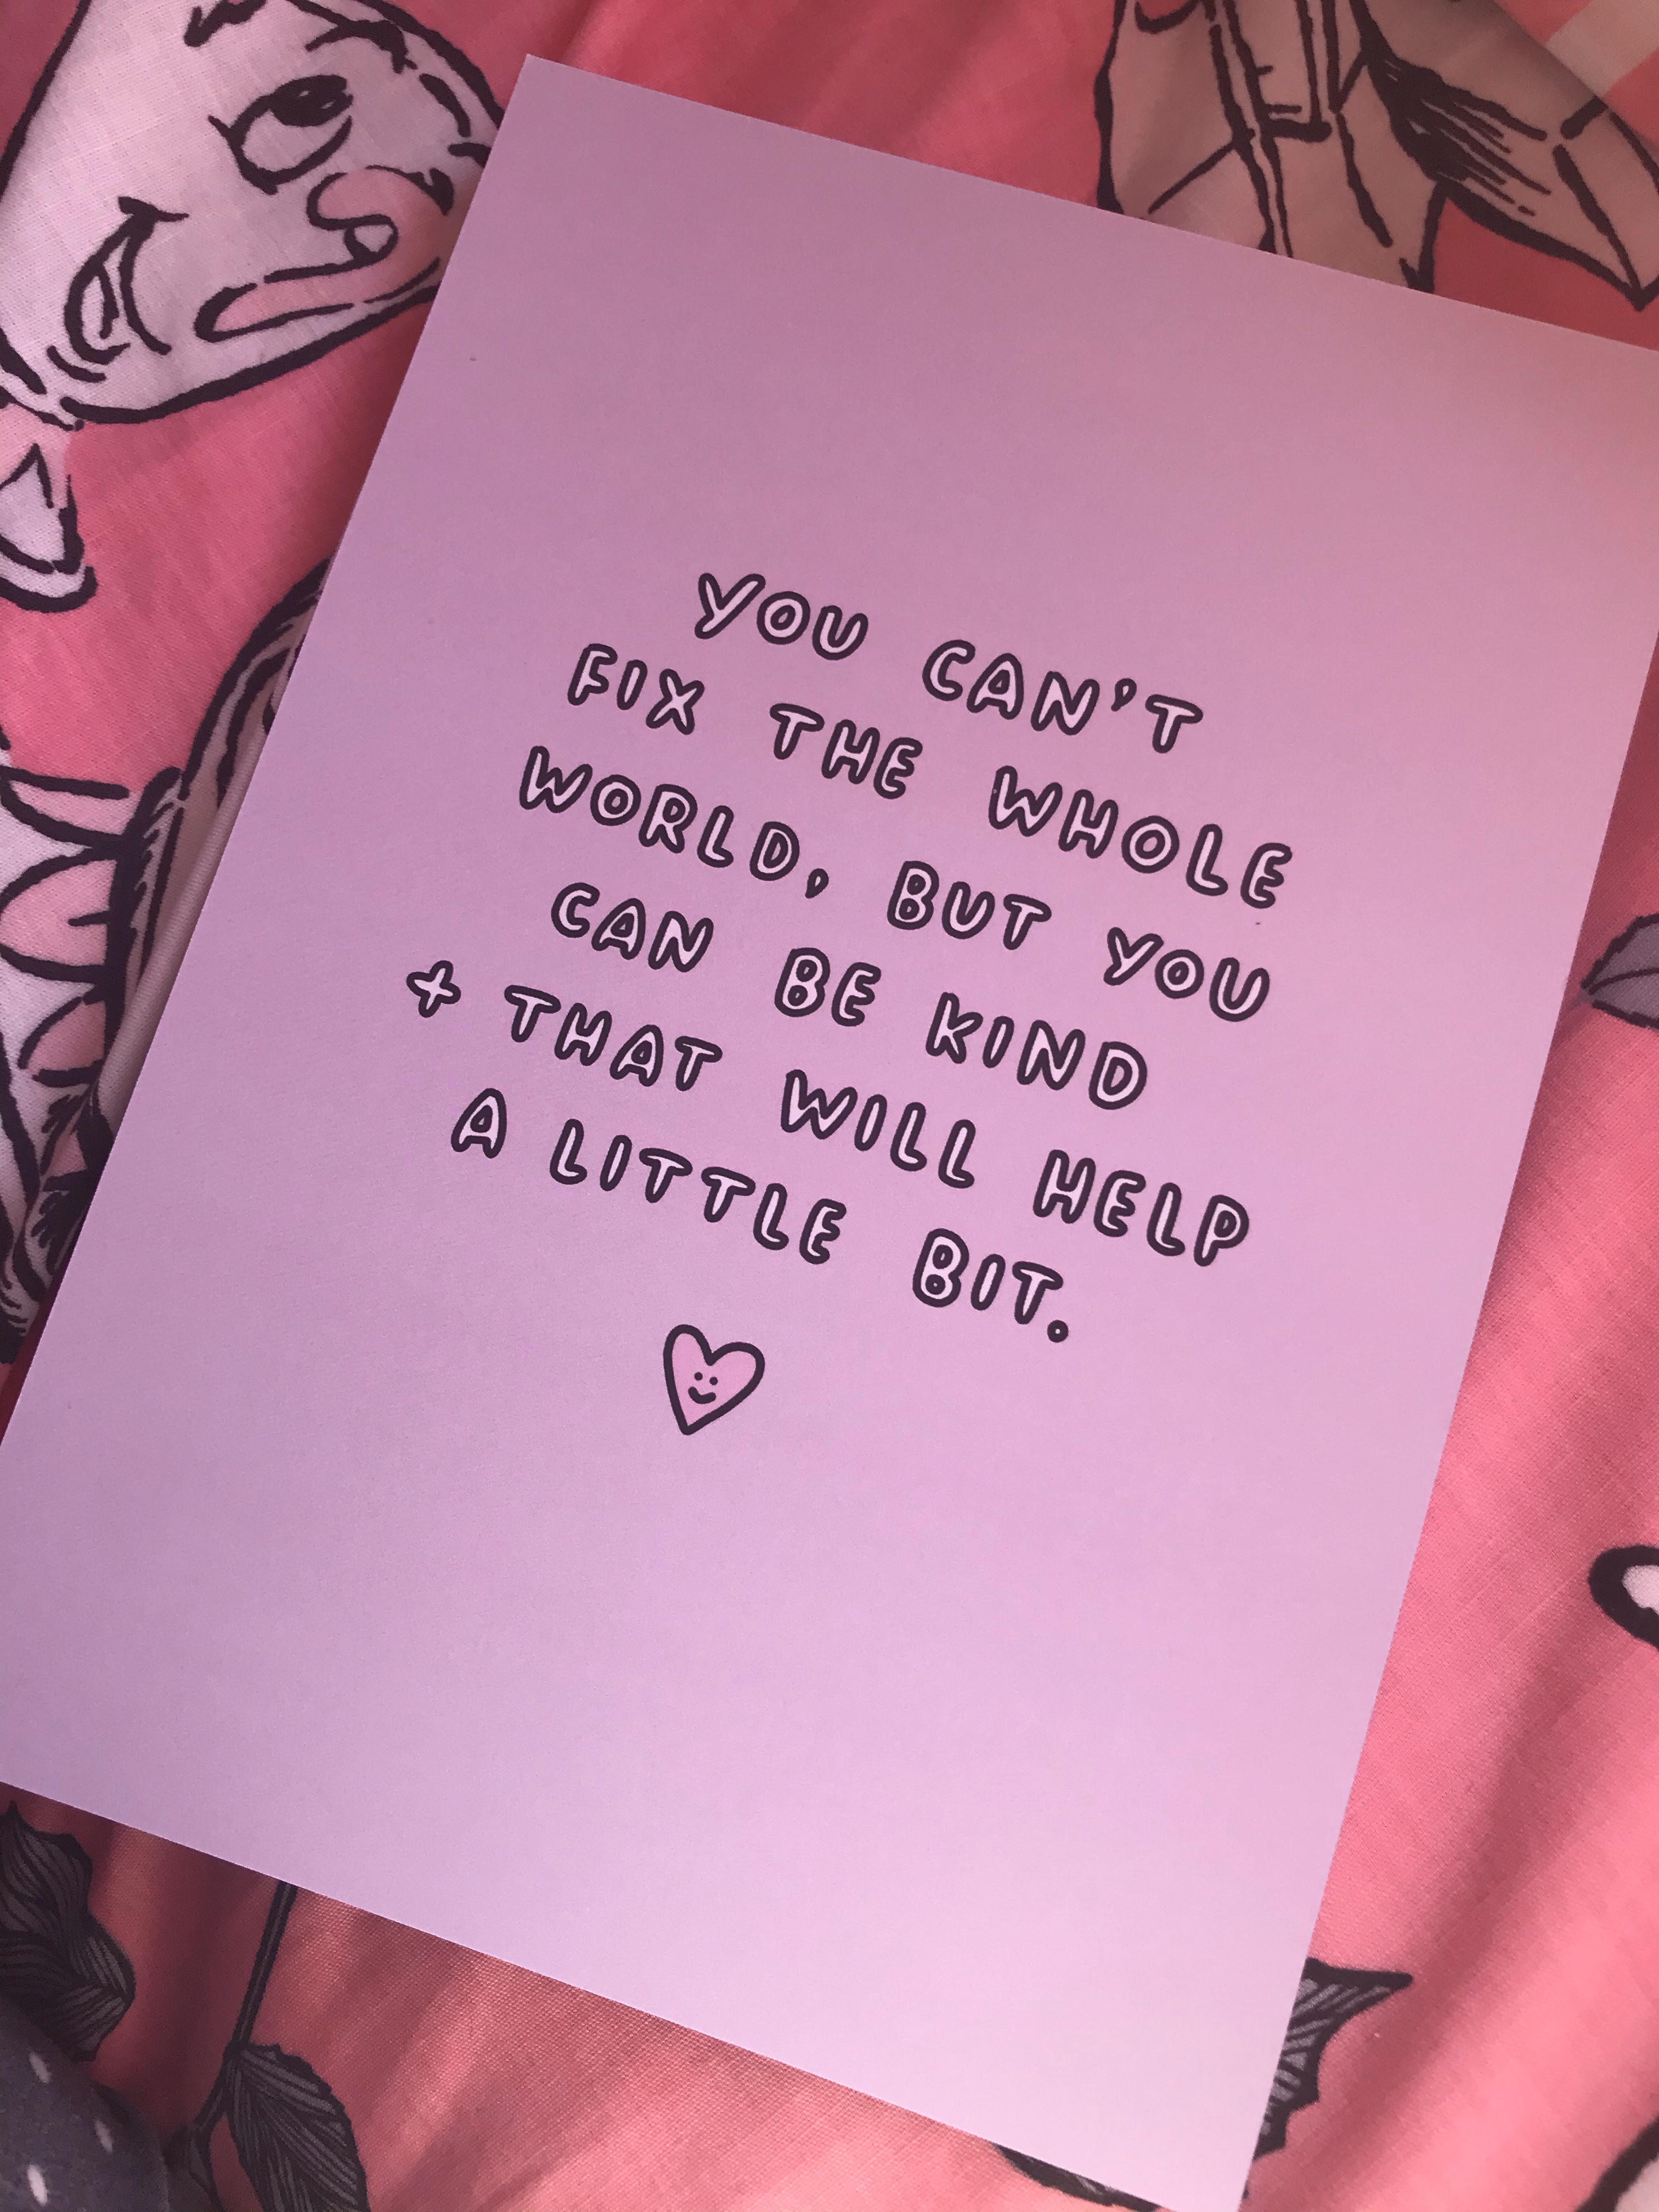 YOU CAN'T
FIX THE WHOLE
WORLD, BUT YOU
CAN BE KIND
+ THAT WILL HELP
A LITTLE BIT.